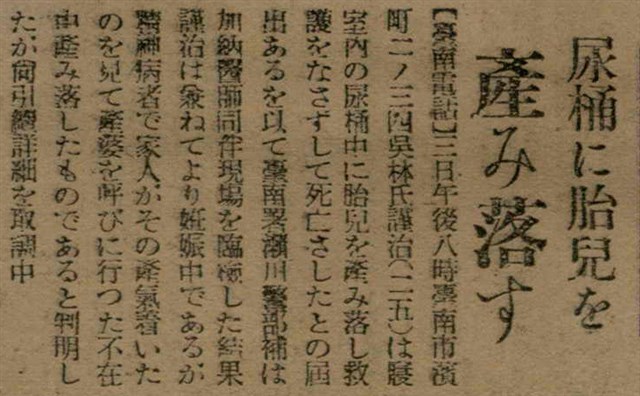 尿桶に胎兒を
產み落す
【臺南電話】三日午後八時臺南市濱
町二ノ三四吳林氏謹治(二五)は寢
室內の尿桶中に胎兒を產み落し救
護をなさずして死亡さしたとの屆
出あるを以て臺南署瀨川警部補は
加納醫師同伴現場を臨檢した結果
謹治は兼ねてより妊娠中であるが
精神病者で家人がその產氣着いた
のを見て產婆を呼びに行つた不在
中產み落したものであると判明し
たが尙引續詳細を取調中